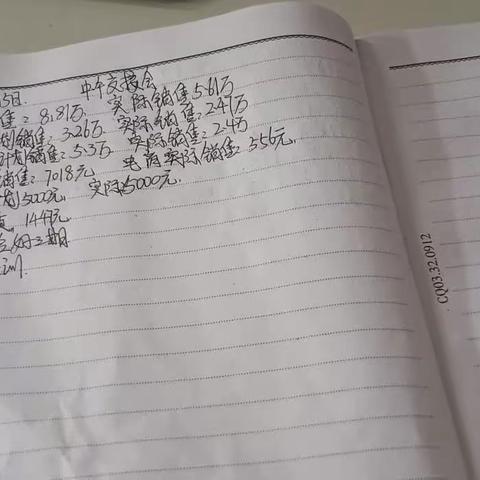 5日. 中午交接会
售: 8.81万, 实际销售5.61万
划销售: 3.26万 实际销售: 2.47万
计划销售: 5.3万 实际销售: 2.4万
销售: 7018元 电商实际销售: 556元,
划5000元, 实际15000元,
144元
三期
CQ03.32.0912